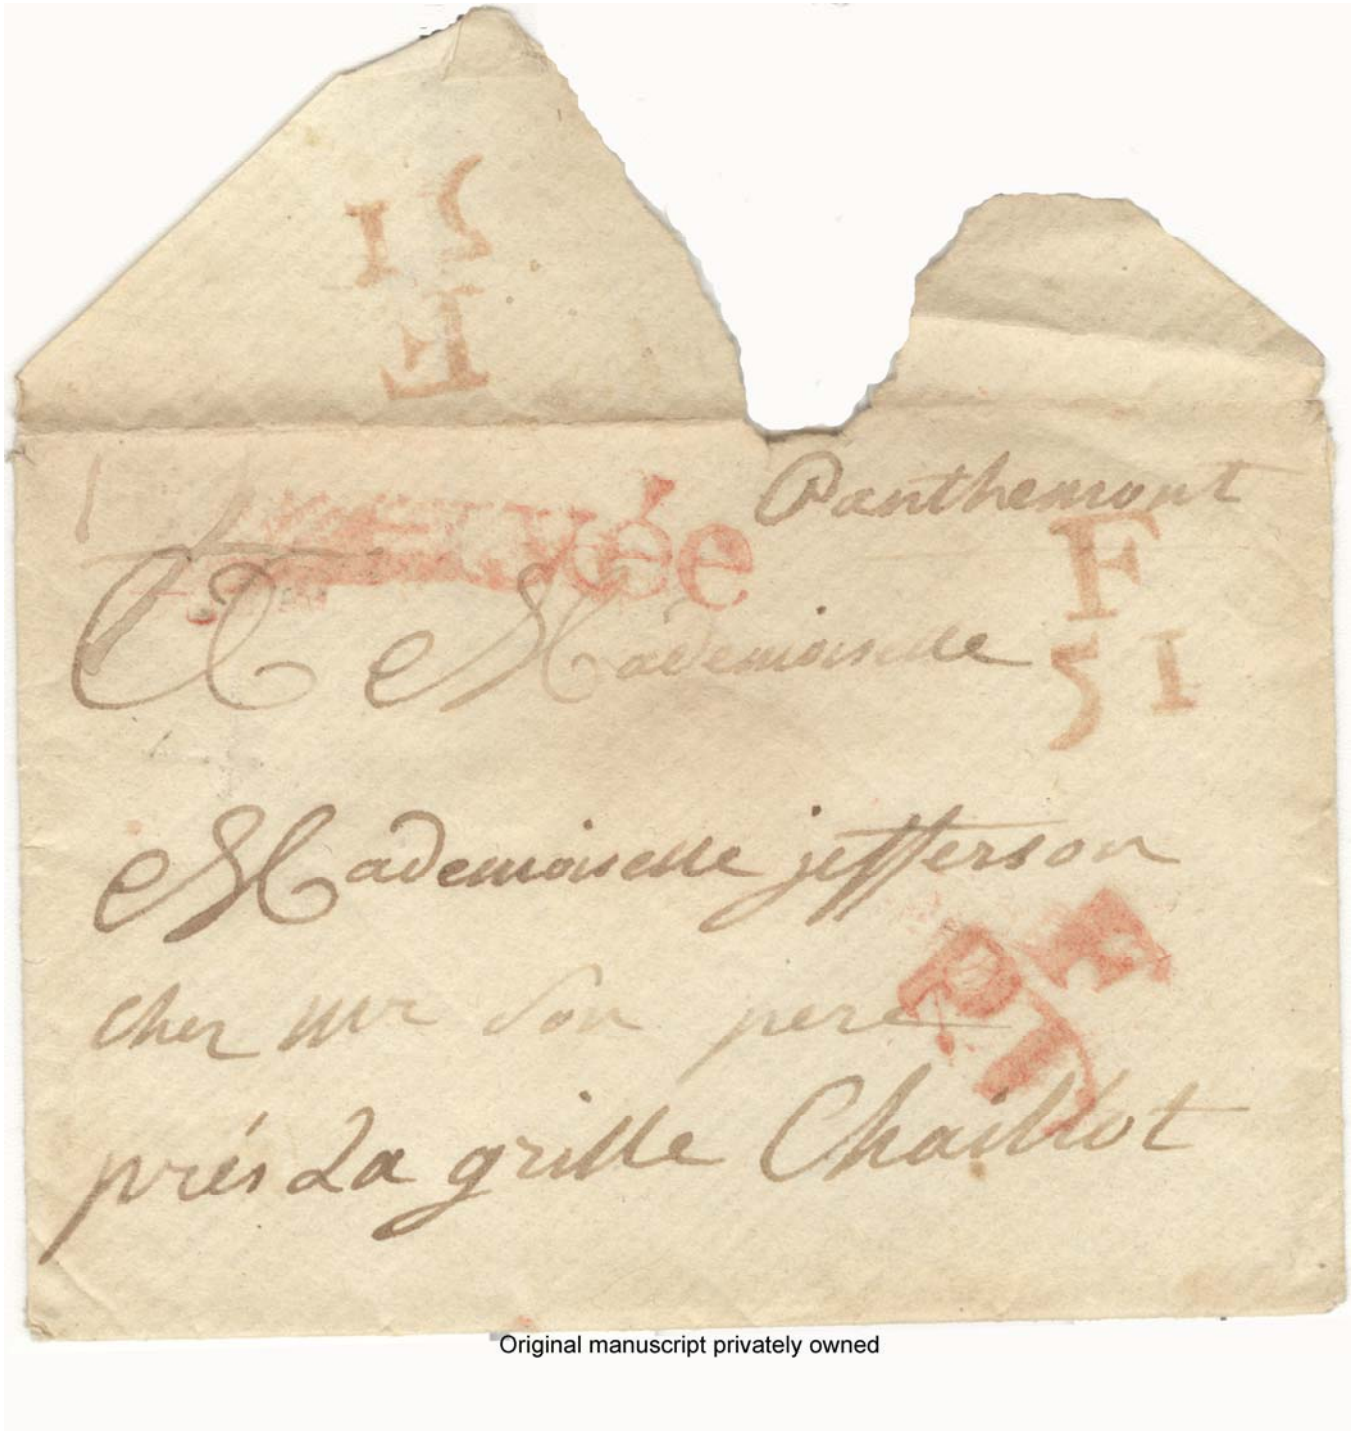 51
F
Panthemont
F
51
A Mademoiselle
Mademoiselle jefferson
cher mr son pere
prés la grille Chaillot
Original manuscript privately owned